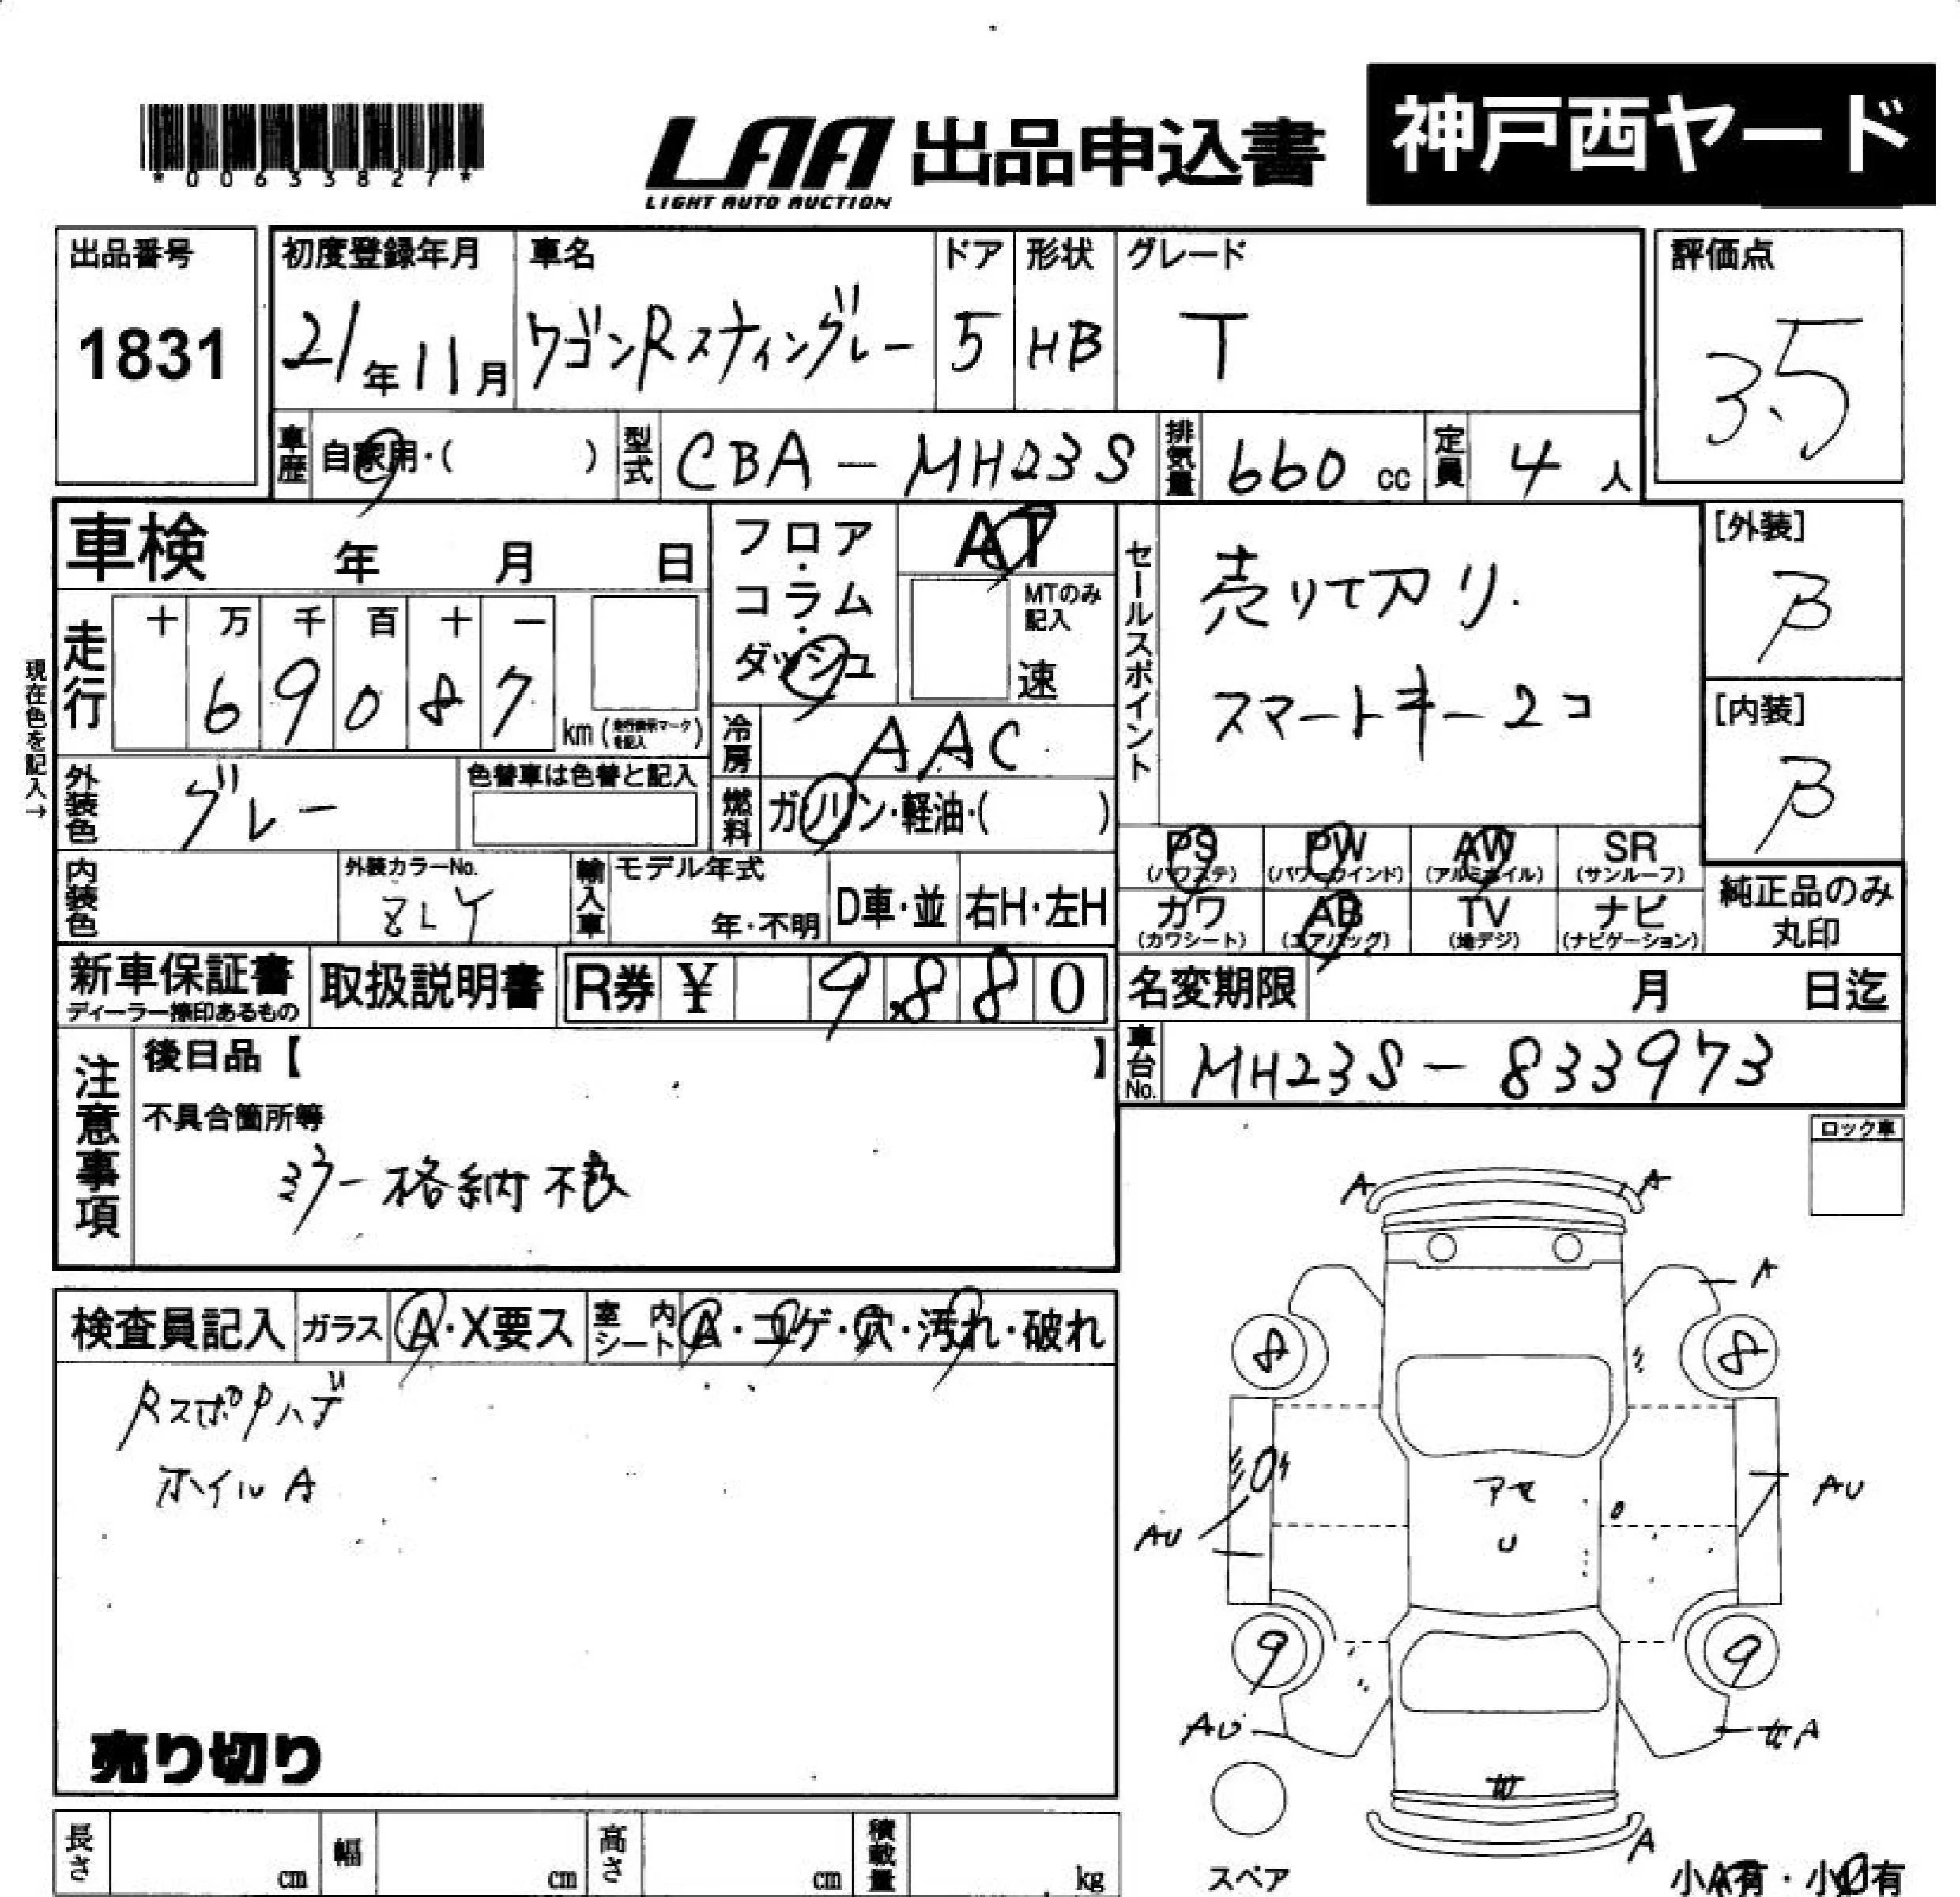 *00633827*
LAA 出品申込書 神戸西ヤード
LIGHT AUTO AUCTION
出品番号 初度登録年月 車名 ドア 形状 グレード 評価点
1831 21年11月 ワゴンRスティングレー 5 HB T 3.5
車歴 自家用・( ) 型式 CBA-MH23S 排気量 660 cc 定員 4人
車検 年 月 日
フロア・コラム・ダッシュ
AT
MTのみ記入
速
セールスポイント
売りて刀リ.
スマートキー2コ
[外装]
B
[内装]
B
現在色を記入→
走行 十 万 千 百 十 一
6 9 0 8 7 km(走行表示マークを記入)
冷房 AAC
外装色 グレー 色替車は色替と記入
燃料 ガソリン・軽油・( )
PS PW AW SR
(パワステ) (パワーウインド) (アルミホイル) (サンルーフ)
カワ AB TV ナビ
(カワシート) (エアバッグ) (地デジ) (ナビゲーション)
純正品のみ
丸印
内装色 外装カラーNo. ZLY 輸入車 モデル年式 年・不明 D車・並 右H・左H
新車保証書 取扱説明書 R券 ¥ 9,880
ディーラー捺印あるもの
名変期限 月 日迄
車台No. MH23S-833973
注意事項
後日品【 】
不具合箇所等
ミラー格納不良
ロック車
検査員記入 ガラス A・X要ス 室内シート A・コゲ・穴・汚れ・破れ
RスポPハゲ
ホイルA
売り切り
A A
A
8 8
AU AU
アセ
U
9 9
AU A
W
A
スペア
小A有・小U有
長さ cm 幅 cm 高さ cm 積載量 kg